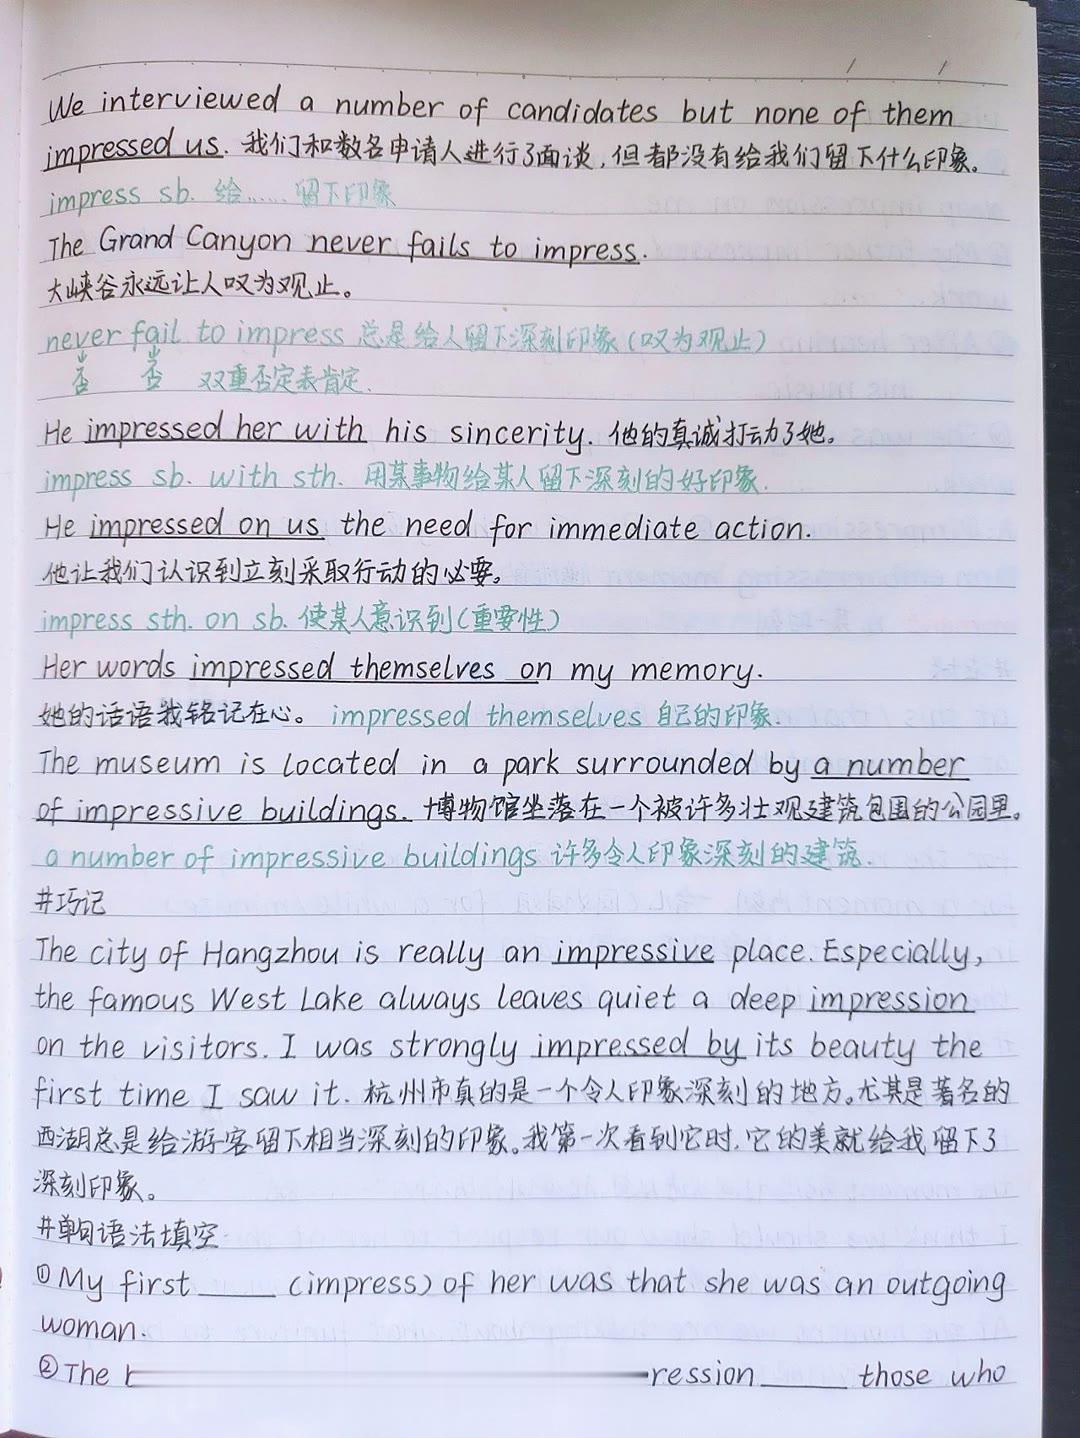 We interviewed a number of candidates but none of them
impressed us. 我们和数名申请人进行了面谈,但都没有给我们留下什么印象。
impress sb. 给……留下印象
The Grand Canyon never fails to impress.
大峡谷永远让人叹为观止。
never fail to impress 总是给人留下深刻印象(叹为观止)
否 否 双重否定表肯定.
He impressed her with his sincerity. 他的真诚打动了她。
impress sb. with sth. 用某事物给某人留下深刻的好印象.
He impressed on us the need for immediate action.
他让我们认识到立刻采取行动的必要。
impress sth. on sb. 使某人意识到(重要性)
Her words impressed themselves on my memory.
她的话语我铭记在心。 impressed themselves 自己的印象.
The museum is located in a park surrounded by a number
of impressive buildings. 博物馆坐落在一个被许多壮观建筑包围的公园里。
a number of impressive buildings 许多令人印象深刻的建筑.
#巧记
The city of Hangzhou is really an impressive place. Especially,
the famous West Lake always leaves quiet a deep impression
on the visitors. I was strongly impressed by its beauty the
first time I saw it. 杭州市真的是一个令人印象深刻的地方。尤其是著名的
西湖总是给游客留下相当深刻的印象。我第一次看到它时,它的美就给我留下了
深刻印象。
#单句语法填空
①My first ____ (impress) of her was that she was an outgoing
woman.
②The ression ____ those who